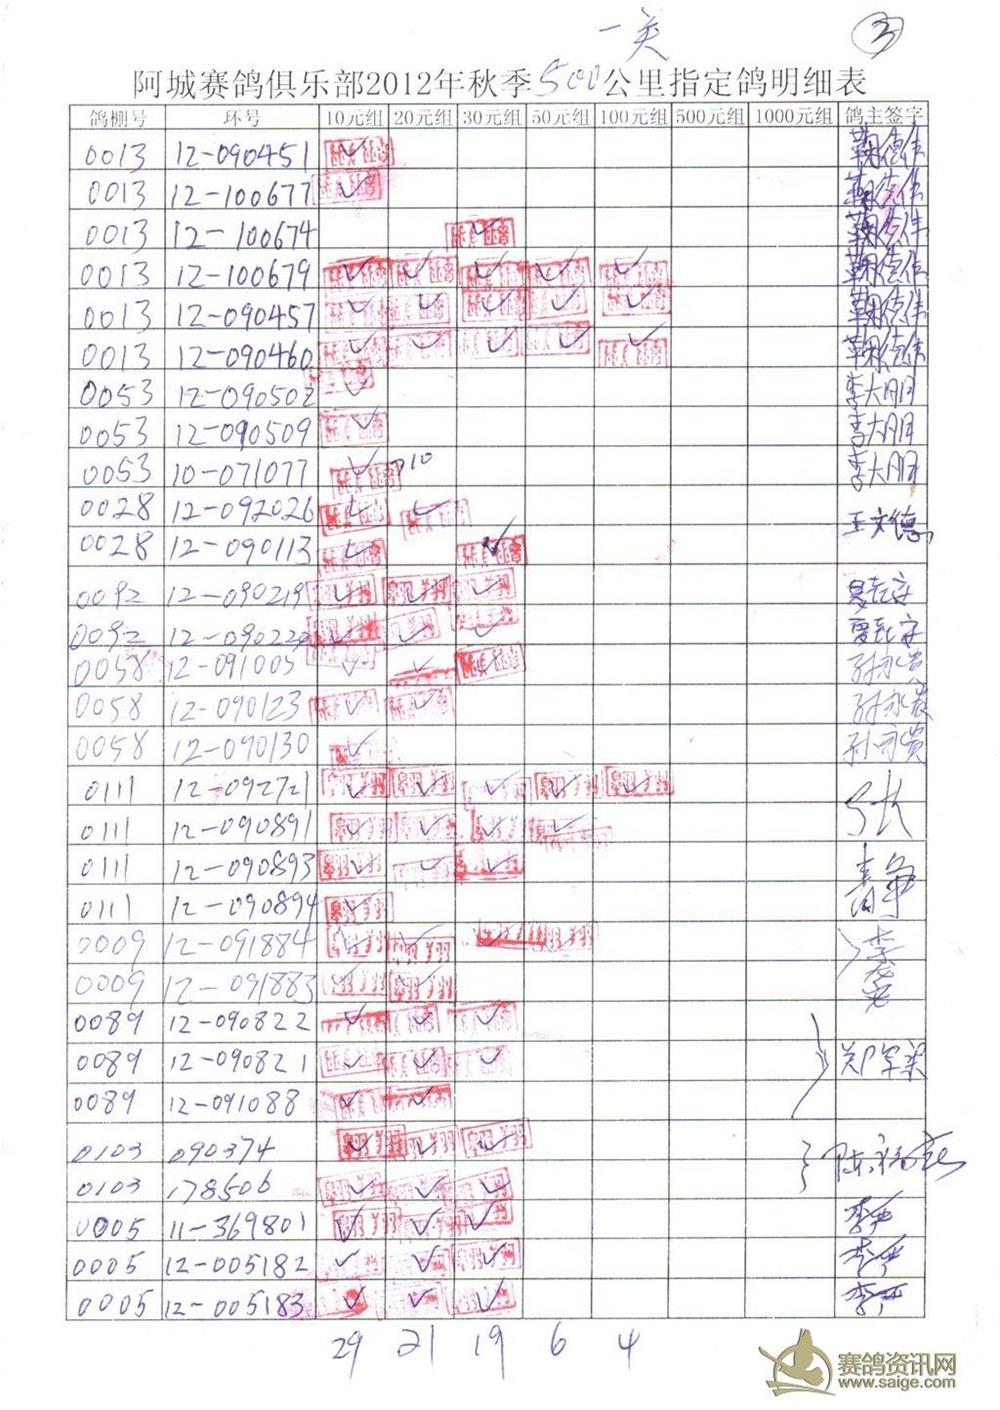 一关
3
阿城赛鸽俱乐部2012年秋季500公里指定鸽明细表
鸽棚号 环号 10元组 20元组 30元组 50元组 100元组 500元组 1000元组 鸽主签字
0013 12-090451 ✓
0013 12-100677 ✓
0013 12-100674 ✓
0013 12-100679 ✓ ✓ ✓ ✓ ✓
0013 12-090457 ✓ ✓ ✓ ✓ ✓
0013 12-090460 ✓ ✓ ✓ ✓ ✓
0053 12-090502 ✓ 李大朋
0053 12-090509 ✓ 李大朋
0053 10-071077 ✓ 10 李大朋
0028 12-092026 ✓ ✓ 王文德
0028 12-090113 ✓ ✓
0092 12-090219 ✓ ✓ ✓
0092 12-090220 ✓ ✓ ✓
0058 12-091005 ✓ ✓ ✓ 孙永贵
0058 12-090123 ✓ ✓ 孙永贵
0058 12-090130 ✓ 孙永贵
0111 12-092721 ✓ ✓ ✓ ✓ ✓ 张
0111 12-090891 ✓ ✓ ✓ ✓
0111 12-090893 ✓ ✓ ✓ 静
0111 12-090894 ✓
0009 12-091884 ✓ ✓ ✓ 李
0009 12-091883 ✓ ✓
0089 12-090822 ✓ ✓ ✓
0089 12-090821 ✓ ✓ ✓ 郑军
0089 12-091088 ✓ ✓
0103 090374 ✓ ✓ ✓ 陈
0103 178506 ✓ ✓ ✓
0005 11-369801 ✓ ✓ ✓ 李严
0005 12-005182 ✓ ✓ ✓ 李严
0005 12-005183 ✓ ✓ ✓ 李严
29 21 19 6 4
赛鸽资讯网
www.saige.com